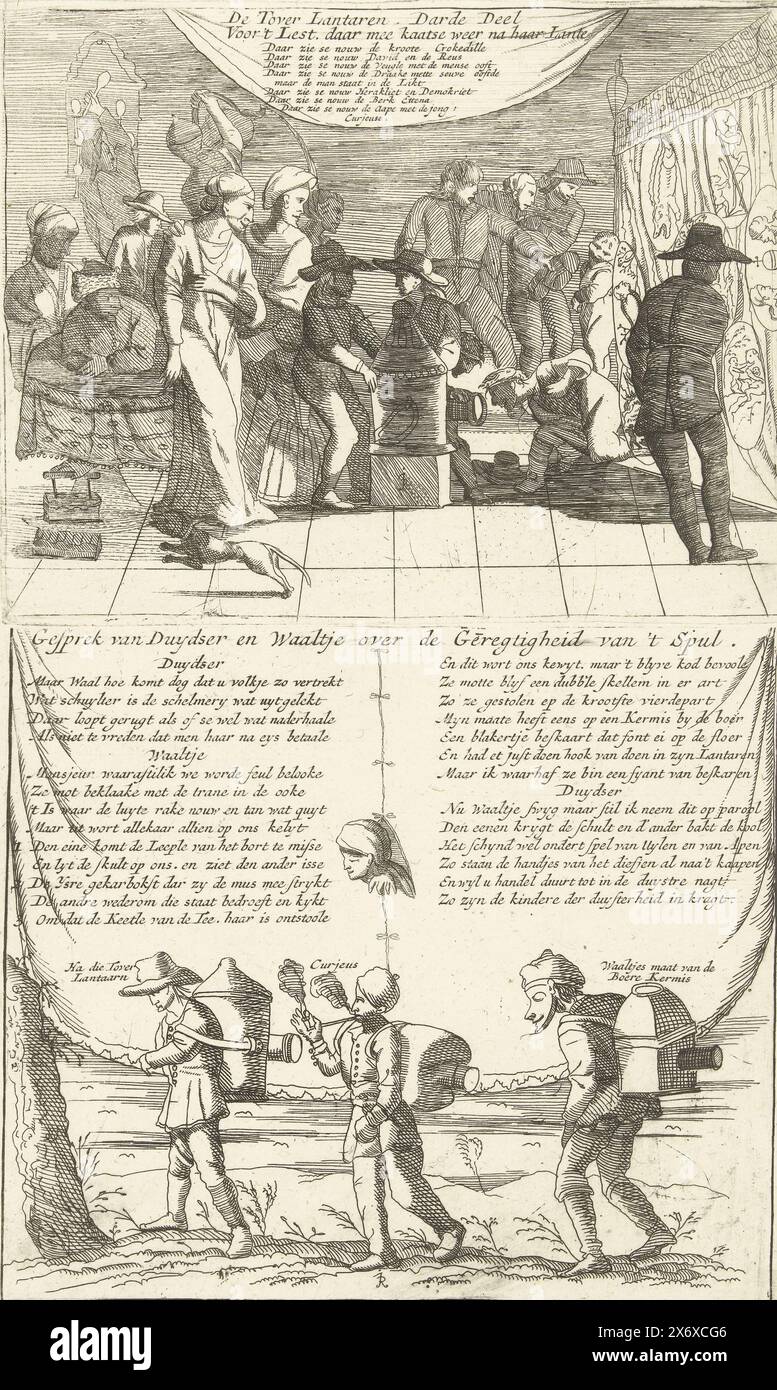 De Tover Lantaren. Darde Deel
Voor't Lest. daar mee kaatse weer na haar Lante
Daar zie se nouw de kroote Crokedille
Daar zie se nouw David en de Reus
Daar zie se nouw de Veugle met de mense ooft
Daar zie se nouw de Draake mette seuve ooftde
maar de man staat in de Likt
Daar zie se nouw Herakliet en Demokriet
Daar zie se nouw de Berk Ettena
Daar zie se nouw de Aape met de jong!
Curjeuse.
1
Gesprek van Duydser en Waaltje over de Geregtigheid van 't Spul.
Duydser
Maar Waal hoe komt dog dat u volkje zo vertrekt
Wat schuylter is de schelmery wat uytgelekt
Daar loopt gerugt als of se wel wat naderhaale
Als niet te vreden dat men haar na eys betaale
Waaltje
Monsjeur waarastilik we worde feul belooke
Ze mot beklaake met de trane in de ooke
't Is waar de luyte rake nouw en tan wat quyt
Maar tit wort allekaar allien op ons kelyt
1 Den eine komt de Leeple van het bort te misse
En lyt de skult op ons. en ziet den ander isse
2 De Ysre gekarbokst dar zy de mus mee strykt
De andre wederom die staat bedroeft en kykt
3 Om dat de Keetle van de Tee. haar is ontstoole
En dit wort ons kewyt. maar't blyve kod bevoole
Ze motte blyf een dubble skellem in er art
Zo ze gestolen ep de krootste vierdepart
Myn maate heeft eens op een Kermis by de boer
Een blakertje beskaart dat font ei op de floer
En had et just doen hook van doen in zyn Lantaren
Maar ik waarhaf ze bin een fyant van beskaren
Duydser
Nu Waaltje swyg maar stil ik neem dit op parool
Den eenen krygt de schult en d'ander bakt de kool
Het schynd wel ondert spel van Uylen en van Apen
Zo staan de handjes van het diefien al naa't kaapen
En wyl u handel duurt tot in de duystre nagt
Zo zyn de kindere der duysterheid in kragt
Ha die Tover
Lantaarn
Curjeus
Waaltjes maat van de
Boere Kermis
R
alamy
Image ID: 2X6XCG6
www.alamy.com